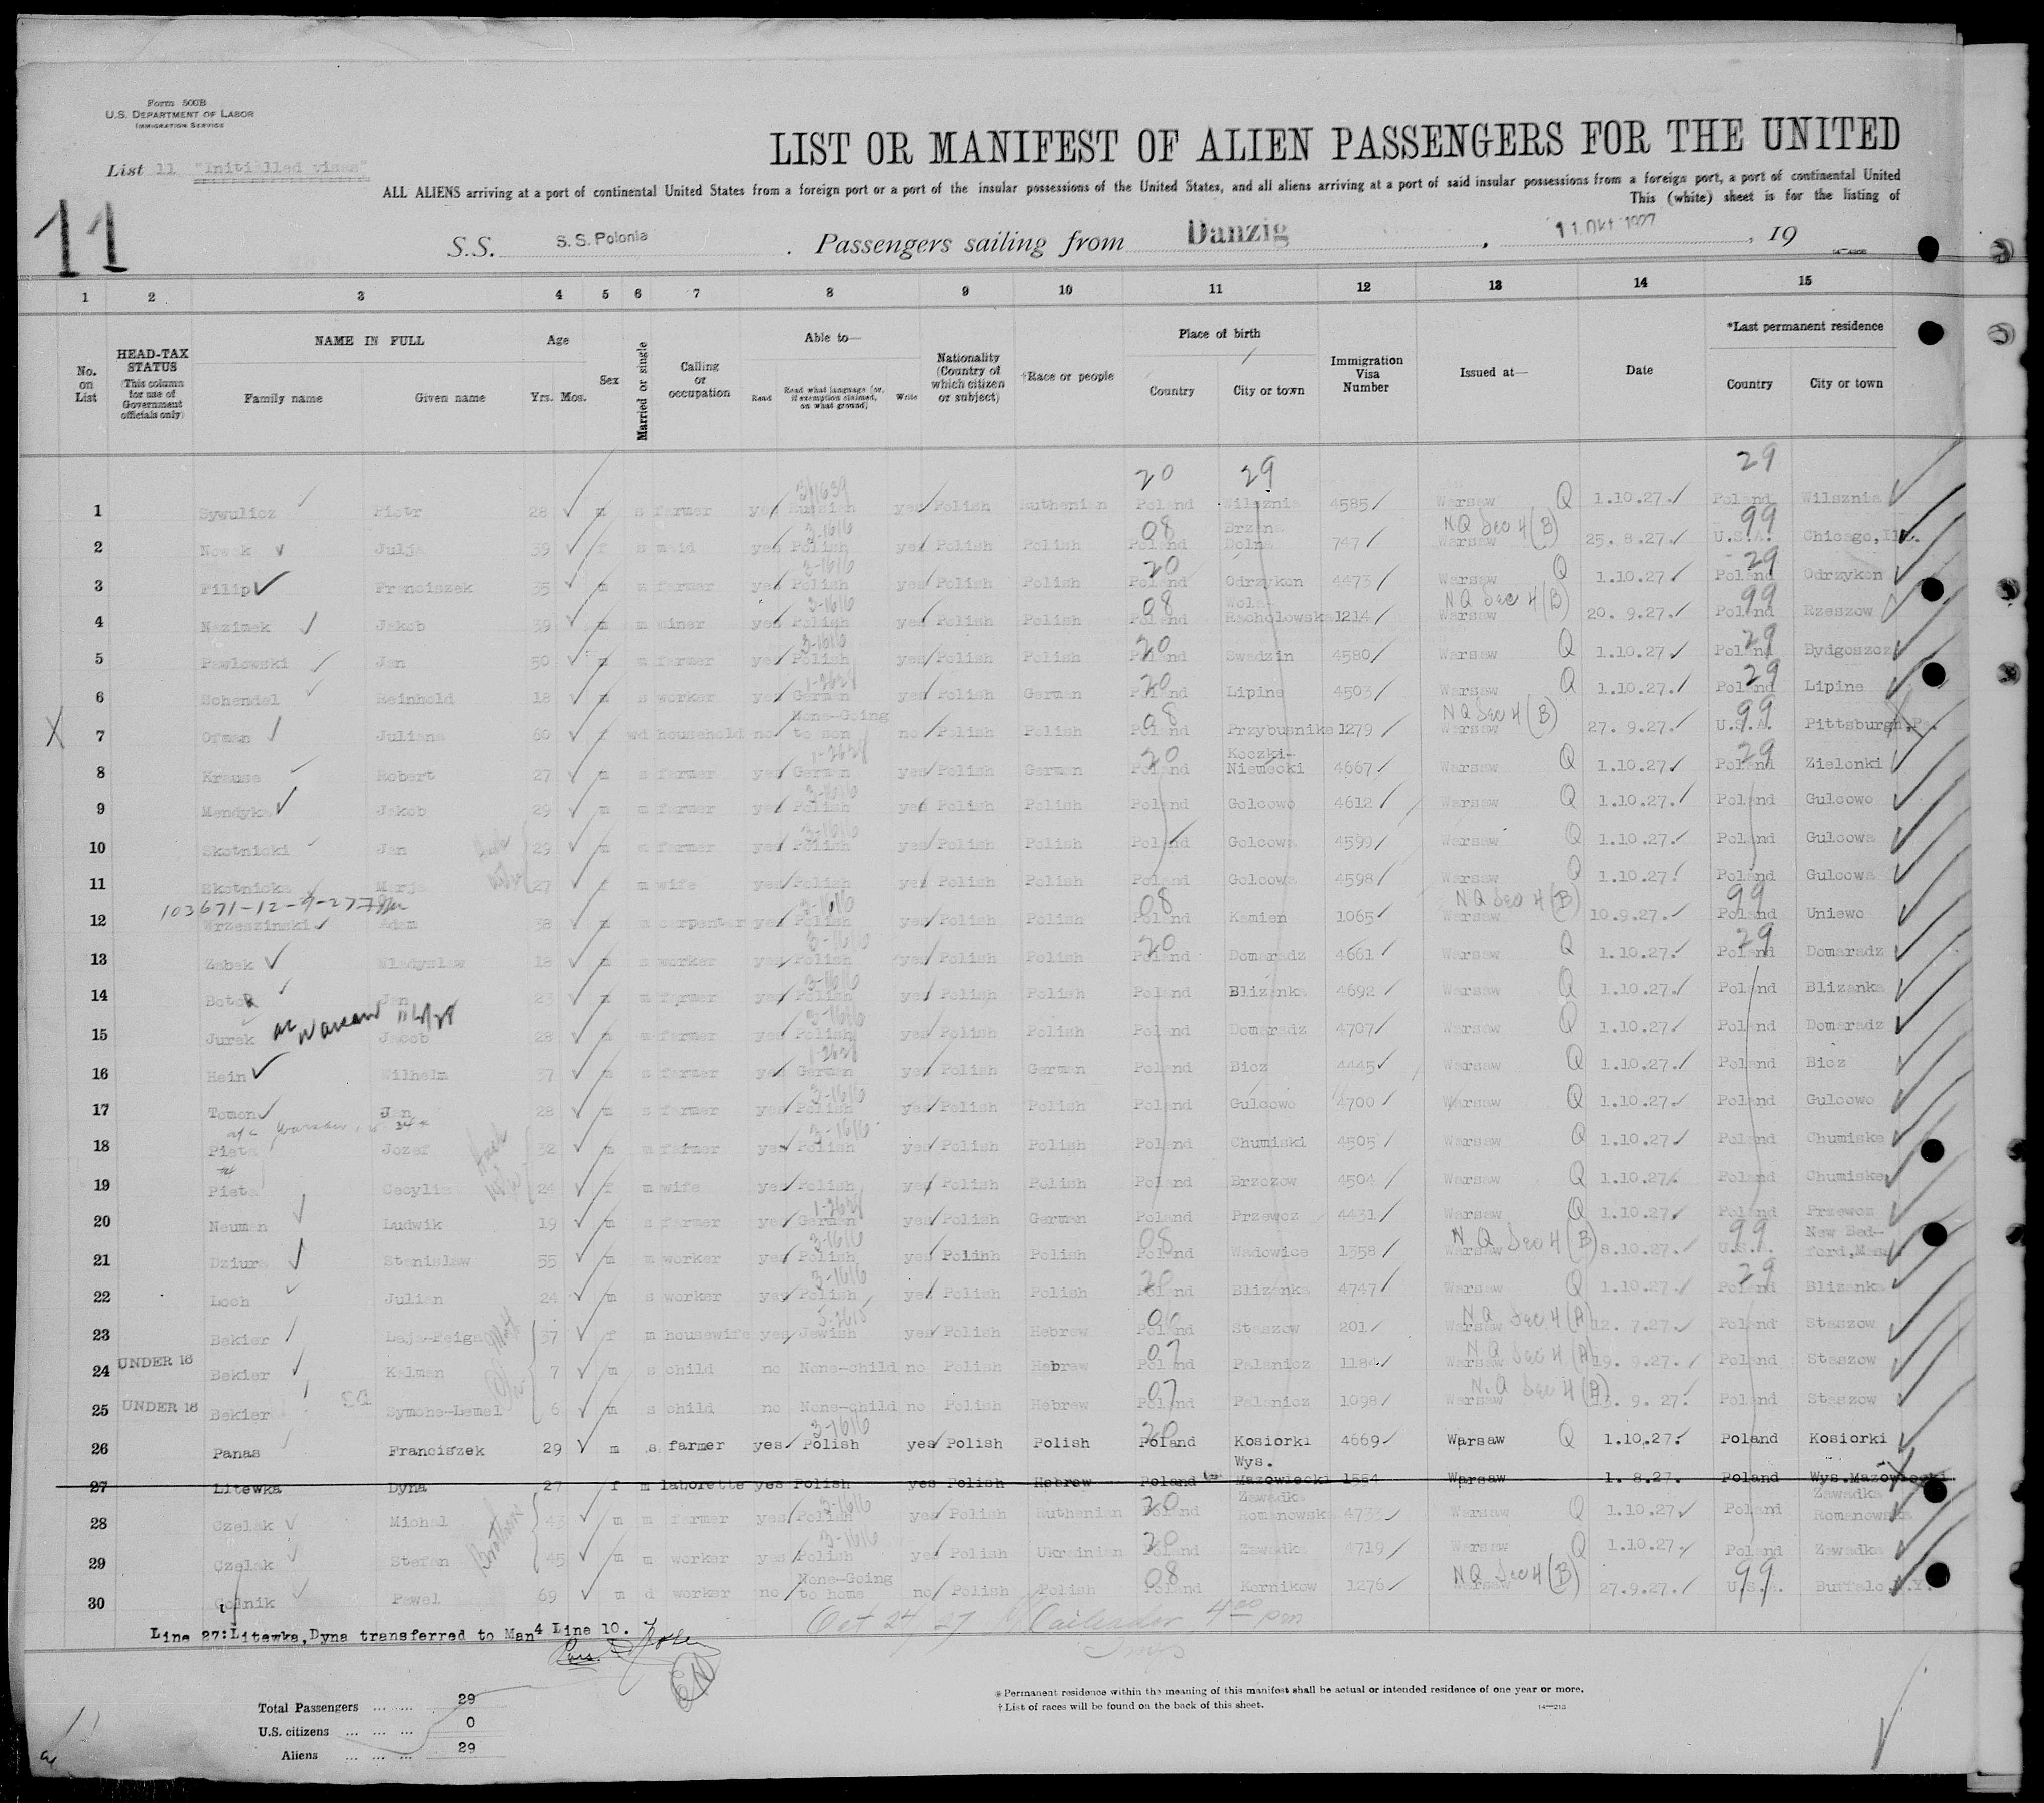 Form 500B
U.S. DEPARTMENT OF LABOR
IMMIGRATION SERVICE
List 11 "Initialled visas"
LIST OR MANIFEST OF ALIEN PASSENGERS FOR THE UNITED
ALL ALIENS arriving at a port of continental United States from a foreign port or a port of the insular possessions of the United States, and all aliens arriving at a port of said insular possessions from a foreign port, a port of continental United
This (white) sheet is for the listing of
11
S.S. S.S. Polonia. Passengers sailing from Danzig, 11. Okt 1927, 19
1 2 3 4 5 6 7 8 9 10 11 12 13 14 15
No. on List
HEAD-TAX STATUS (This column for use of Government officials only)
NAME IN FULL
Family name Given name
Age
Yrs. Mos.
Sex
Married or single
Calling or occupation
Able to—
Read Read what language [or, if exemption claimed, on what ground] Write
Nationality (Country of which citizen or subject)
†Race or people
Place of birth
Country City or town
Immigration Visa Number
Issued at—
Date
*Last permanent residence
Country City or town
20 29 29
1 Sywulicz Piotr 28 m s farmer yes Russian yes Polish Ruthenian Poland Wilsznia 4585 Warsaw Q 1.10.27. Poland Wilsznia
2 Nowak Julja 39 f s maid yes Polish 3-1616 yes Polish Polish Poland 08 Brzina Dolna 747 Warsaw NQ Sec 4 (B) 25.8.27. U.S.A. 99 Chicago, Ill.
3 Filip Franciszek 35 m m farmer yes Polish 3-1616 yes Polish Polish Poland 20 Odrzykon 4473 Warsaw Q 1.10.27 Poland 29 Odrzykon
4 Nazimek Jakob 39 m m miner yes Polish 3-1616 yes Polish Polish Poland 08 Wola- Racholowska 1214 Warsaw NQ Sec 4 (B) 20. 9.27. Poland 99 Rzeszow
5 Pawlowski Jan 50 m m farmer yes Polish 3-1616 yes Polish Polish Poland 20 Swadzin 4580 Warsaw Q 1.10.27 Poland 29 Bydgoszcz
6 Schendel Reinhold 18 m s worker yes German 1-2628 yes Polish German Poland 20 Lipine 4503 Warsaw Q 1.10.27. Poland 29 Lipine
X 7 Ofman Juliana 60 f wd household no None-Going to son no Polish Polish Poland 08 Przybusnike 1279 Warsaw NQ Sec 4 (B) 27. 9.27. U.S.A. 99 Pittsburgh, Pa.
8 Krause Robert 27 m s farmer yes German 1-2628 yes Polish German Poland 20 Koczki- Niemecki 4667 Warsaw Q 1.10.27 Poland 29 Zielonki
9 Mendyka Jakob 29 m m farmer yes Polish 3-1616 yes Polish Polish Poland Golcowo 4612 Warsaw Q 1.10.27. Poland Gulcowo
10 Skotnicki Jan 29 m m farmer yes Polish 3-1616 yes Polish Polish Poland Golcowa 4599 Warsaw Q 1.10.27. Poland Gulcowa
11 Skotnicka Marja 27 f m wife yes Polish yes Polish Polish Poland Golcowa 4598 Warsaw Q 1.10.27. Poland Gulcowa
103671-12-9-27
12 Wrzeszinski Adam 38 m m carpenter yes Polish 3-1616 yes Polish Polish Poland 08 Kamien 1065 Warsaw NQ Sec 4 (B) 10.9.27. Poland 99 Uniewo
13 Zabek Wladyslaw 18 m s worker yes Polish 3-1616 yes Polish Polish Poland 20 Domaradz 4661 Warsaw Q 1.10.27. Poland 29 Domaradz
14 Jan 23 m m farmer yes Polish 3-1616 yes Polish Polish Poland Blizanka 4692 Warsaw Q 1.10.27. Poland Blizanka
Warsaw
15 Jurek Jacob 28 m m farmer yes Polish 3-1616 yes Polish Polish Poland Domaradz 4707 Warsaw Q 1.10.27 Poland Domaradz
16 Hein Wilhelm 37 m s farmer yes German 1-2628 yes Polish German Poland Bioz 4445 Warsaw Q 1.10.27. Poland Bioz
17 Tomon Jan 28 m s farmer yes Polish 3-1616 yes Polish Polish Poland Gulcowo 4700 Warsaw Q 1.10.27. Poland Gulcowo
18 Pieta Jozef 32 m m farmer yes Polish 3-1616 yes Polish Polish Poland Chumiski 4505 Warsaw Q 1.10.27 Poland Chumiske
19 Pieta Cecylia 24 f m wife yes Polish yes Polish Polish Poland Brzozow 4504 Warsaw Q 1.10.27. Poland Chumiske
20 Neuman Ludwik 19 m s farmer yes German 1-2628 yes Polish German Poland Przewoz 4431 Warsaw Q 1.10.27 Poland Przewoz
21 Dziura Stanislaw 55 m m worker yes Polish 3-1616 yes Polish Polish Poland 08 Wadowice 1358 Warsaw NQ Sec 4 (B) 8.10.27. U.S.A. 99 New Bed- ford, Mass.
22 Loch Julian 24 m s worker yes Polish 3-1616 yes Polish Polish Poland 20 Blizanka 4747 Warsaw Q 1.10.27. Poland 29 Blizanka
23 Bekier Laja-Feiga 37 f m housewife yes Jewish 5-2615 yes Polish Hebrew Poland 06 Staszow 201 Warsaw NQ Sec 4 (A) 12. 7.27. Poland Staszow
24 UNDER 16 Bekier Kalman 7 m s child no None-child no Polish Hebrew Poland 07 Palanicz 1184 Warsaw NQ Sec 4 (A) 19. 9.27. Poland Staszow
25 UNDER 16 Bekier Symche-Lemel 6 m s child no None-child no Polish Hebrew Poland 07 Palanicz 1098 Warsaw N.Q Sec 4 (A) 9. 27. Poland Staszow
26 Panas Franciszek 29 m s farmer yes Polish 3-1616 yes Polish Polish Poland 20 Kosiorki 4669 Warsaw Q 1.10.27. Poland Kosiorki
27 Litewka Dyna 27 f m laborette yes Polish yes Polish Hebrew Poland Wys. Mazowiecki 1554 Warsaw 1. 8.27. Poland Wys.Mazowiecki
Brothers
28 Czelak Michal 43 m m farmer yes Polish 3-1616 yes Polish Ruthenian Poland 20 Zawadka Romanowsk 4733 Warsaw Q 1.10.27 Poland Zawadka Romanowska
29 Czelak Stefan 45 m m worker yes Polish 3-1616 yes Polish Ukrainian Poland 20 Zawadka 4719 Warsaw Q 1.10.27. Poland Zawadka
30 Golnik Pawel 69 m d worker no None-Going to home no Polish Polish Poland 08 Kornikow 1276 Warsaw NQ Sec 4 (B) 27.9.27. U.S.A. 99 Buffalo, N.Y.
Line 27:Litewka,Dyna transferred to Man 4 Line 10.
Oct 24 27 4 00 pm
Total Passengers ... ... 29
U.S. citizens ... ... ... 0
Aliens ... ... ... 29
*Permanent residence within the meaning of this manifest shall be actual or intended residence of one year or more.
†List of races will be found on the back of this sheet.
14—213